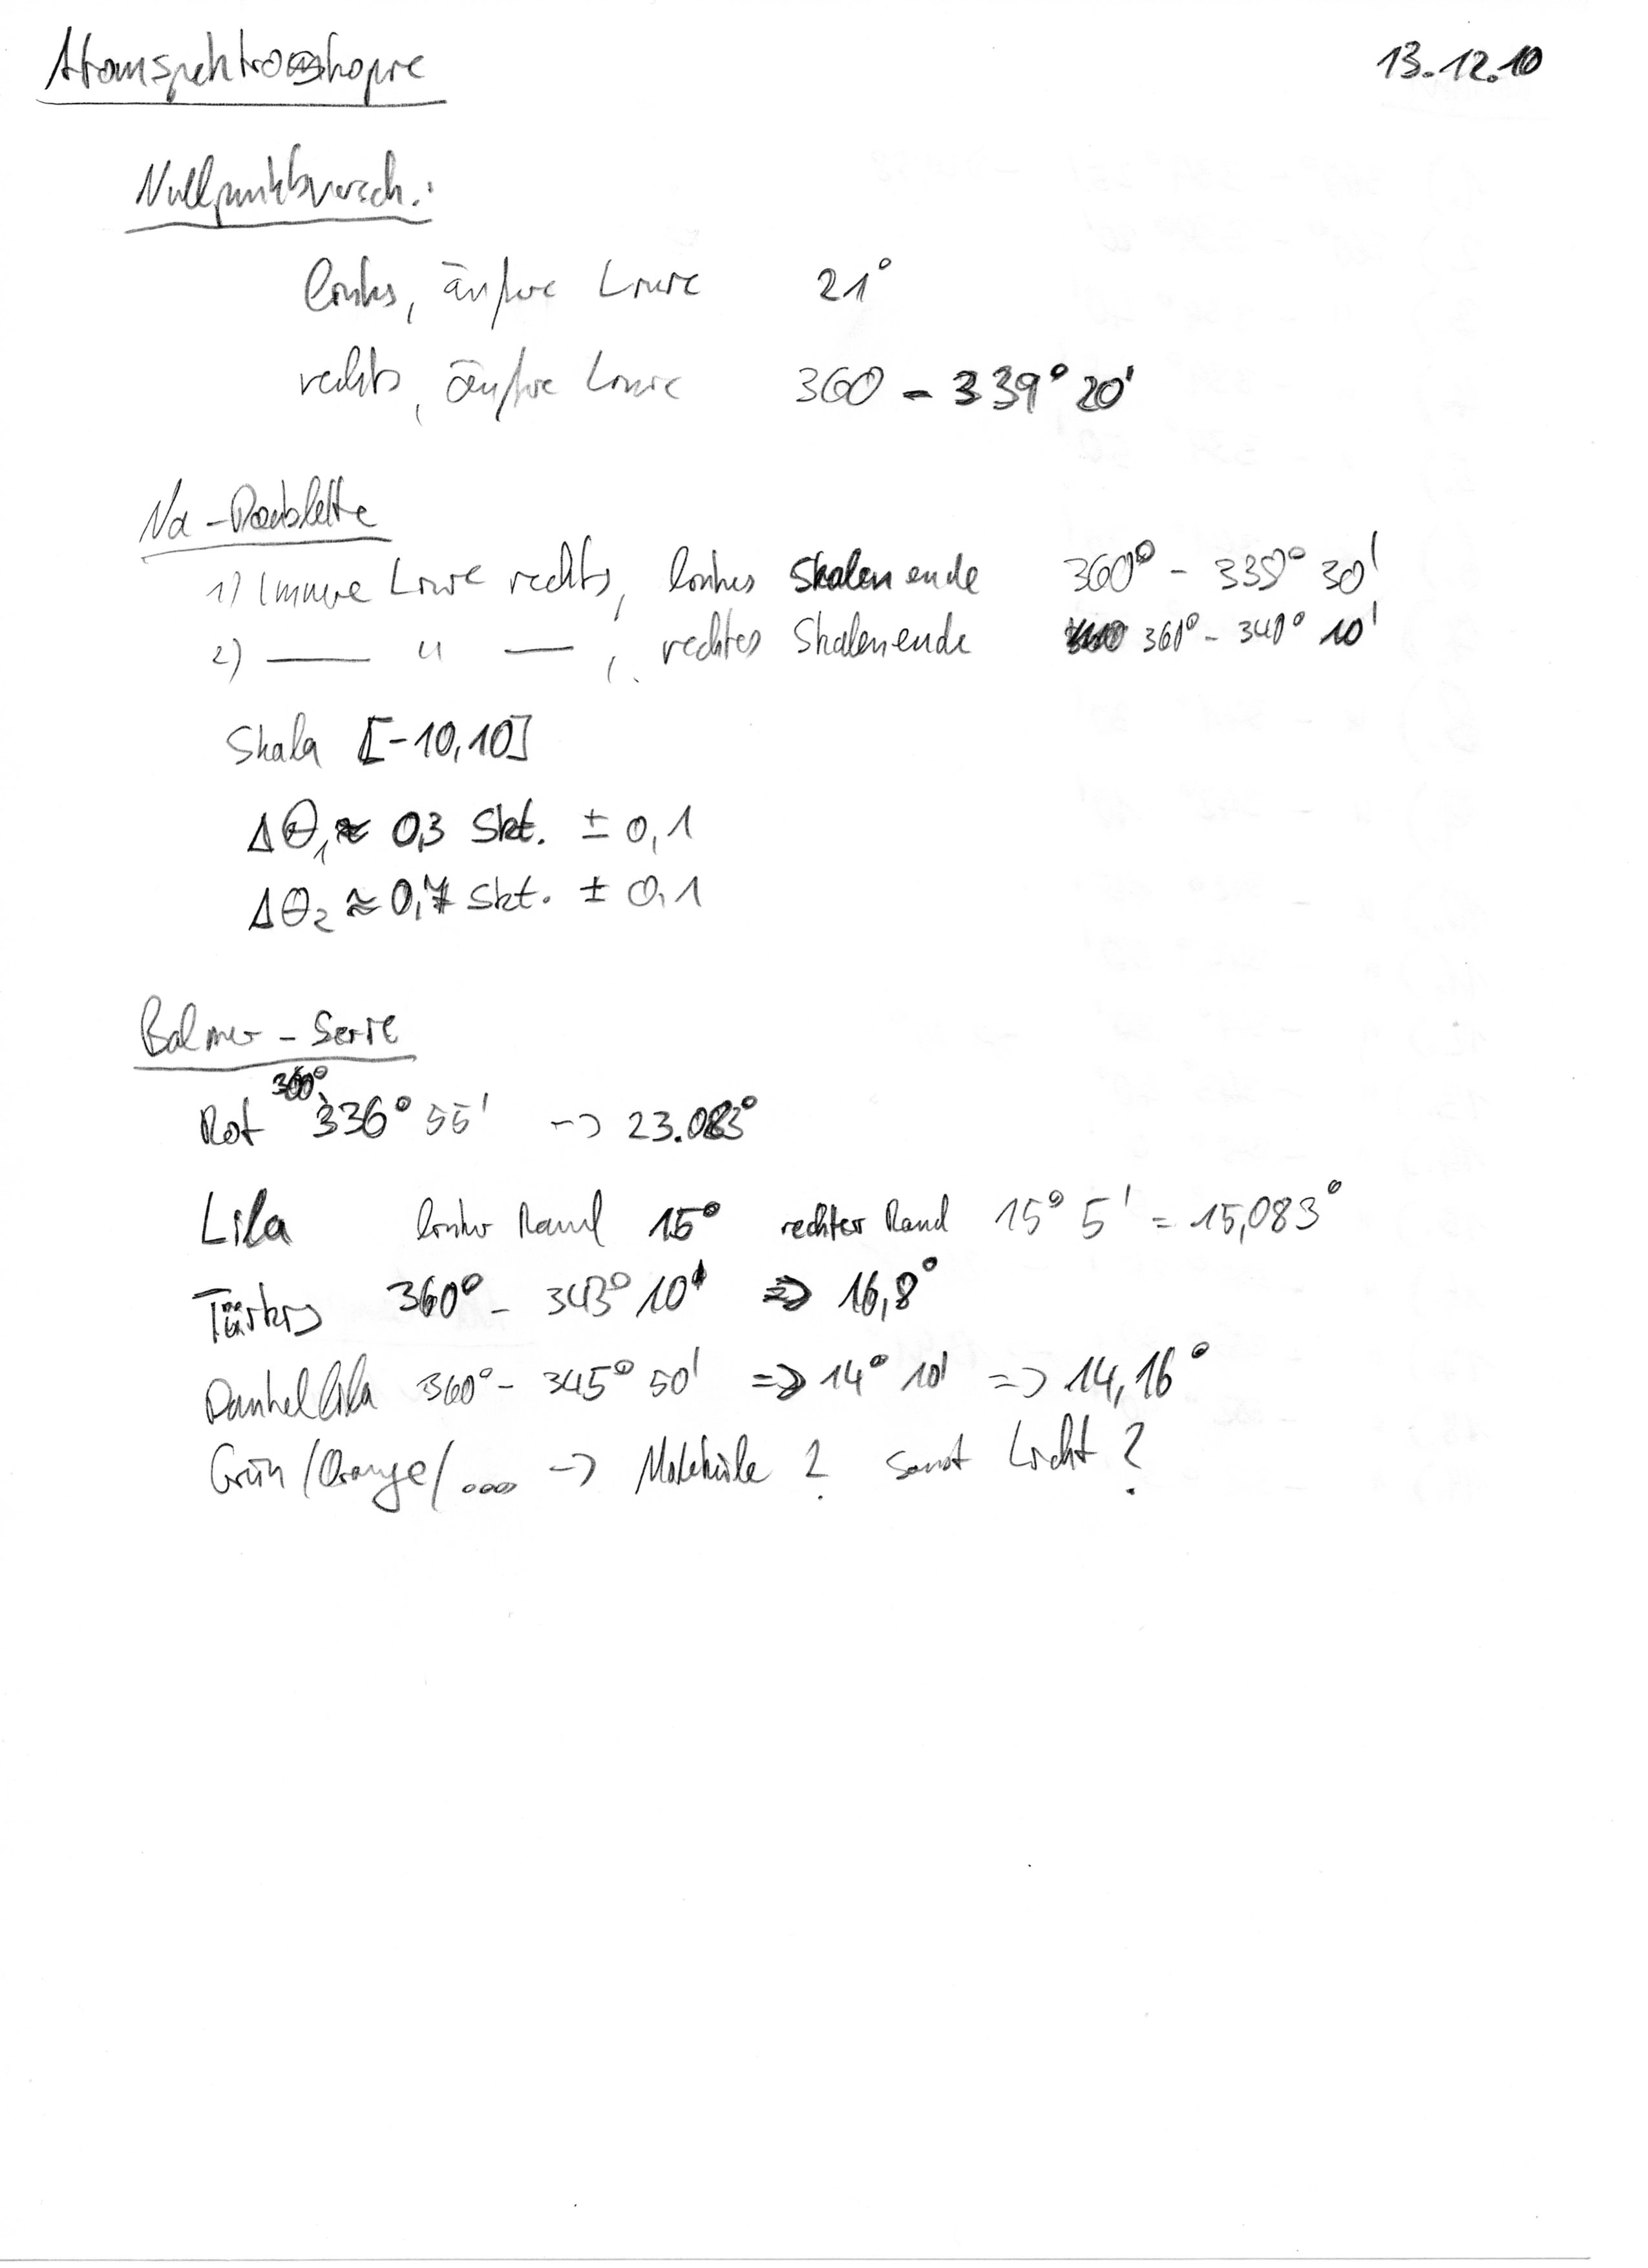 Atomspektroskopie 13.12.10
Nullpunktsversch.:
links, äußre Linie 21°
rechts, äußre Linie 360 - 339° 20'
Na-Doublette
1) Innere Linie rechts, linkes Skalenende 360° - 339° 30'
2) — " — , rechtes Skalenende 360° - 340° 10'
Skala [-10,10]
ΔΘ₁ ≈ 0,3 Skt. ± 0,1
ΔΘ₂ ≈ 0,7 Skt. ± 0,1
Balmer-Serie
360°
Rot 336° 55' -> 23.083°
Lila linker Rand 15° rechter Rand 15° 5' = 15,083°
Türkis 360° - 343° 10' => 16,8°
Dunkellila 360° - 345° 50' => 14° 10' => 14,16°
Grün/Orange/.... -> Moleküle? sonst Licht?